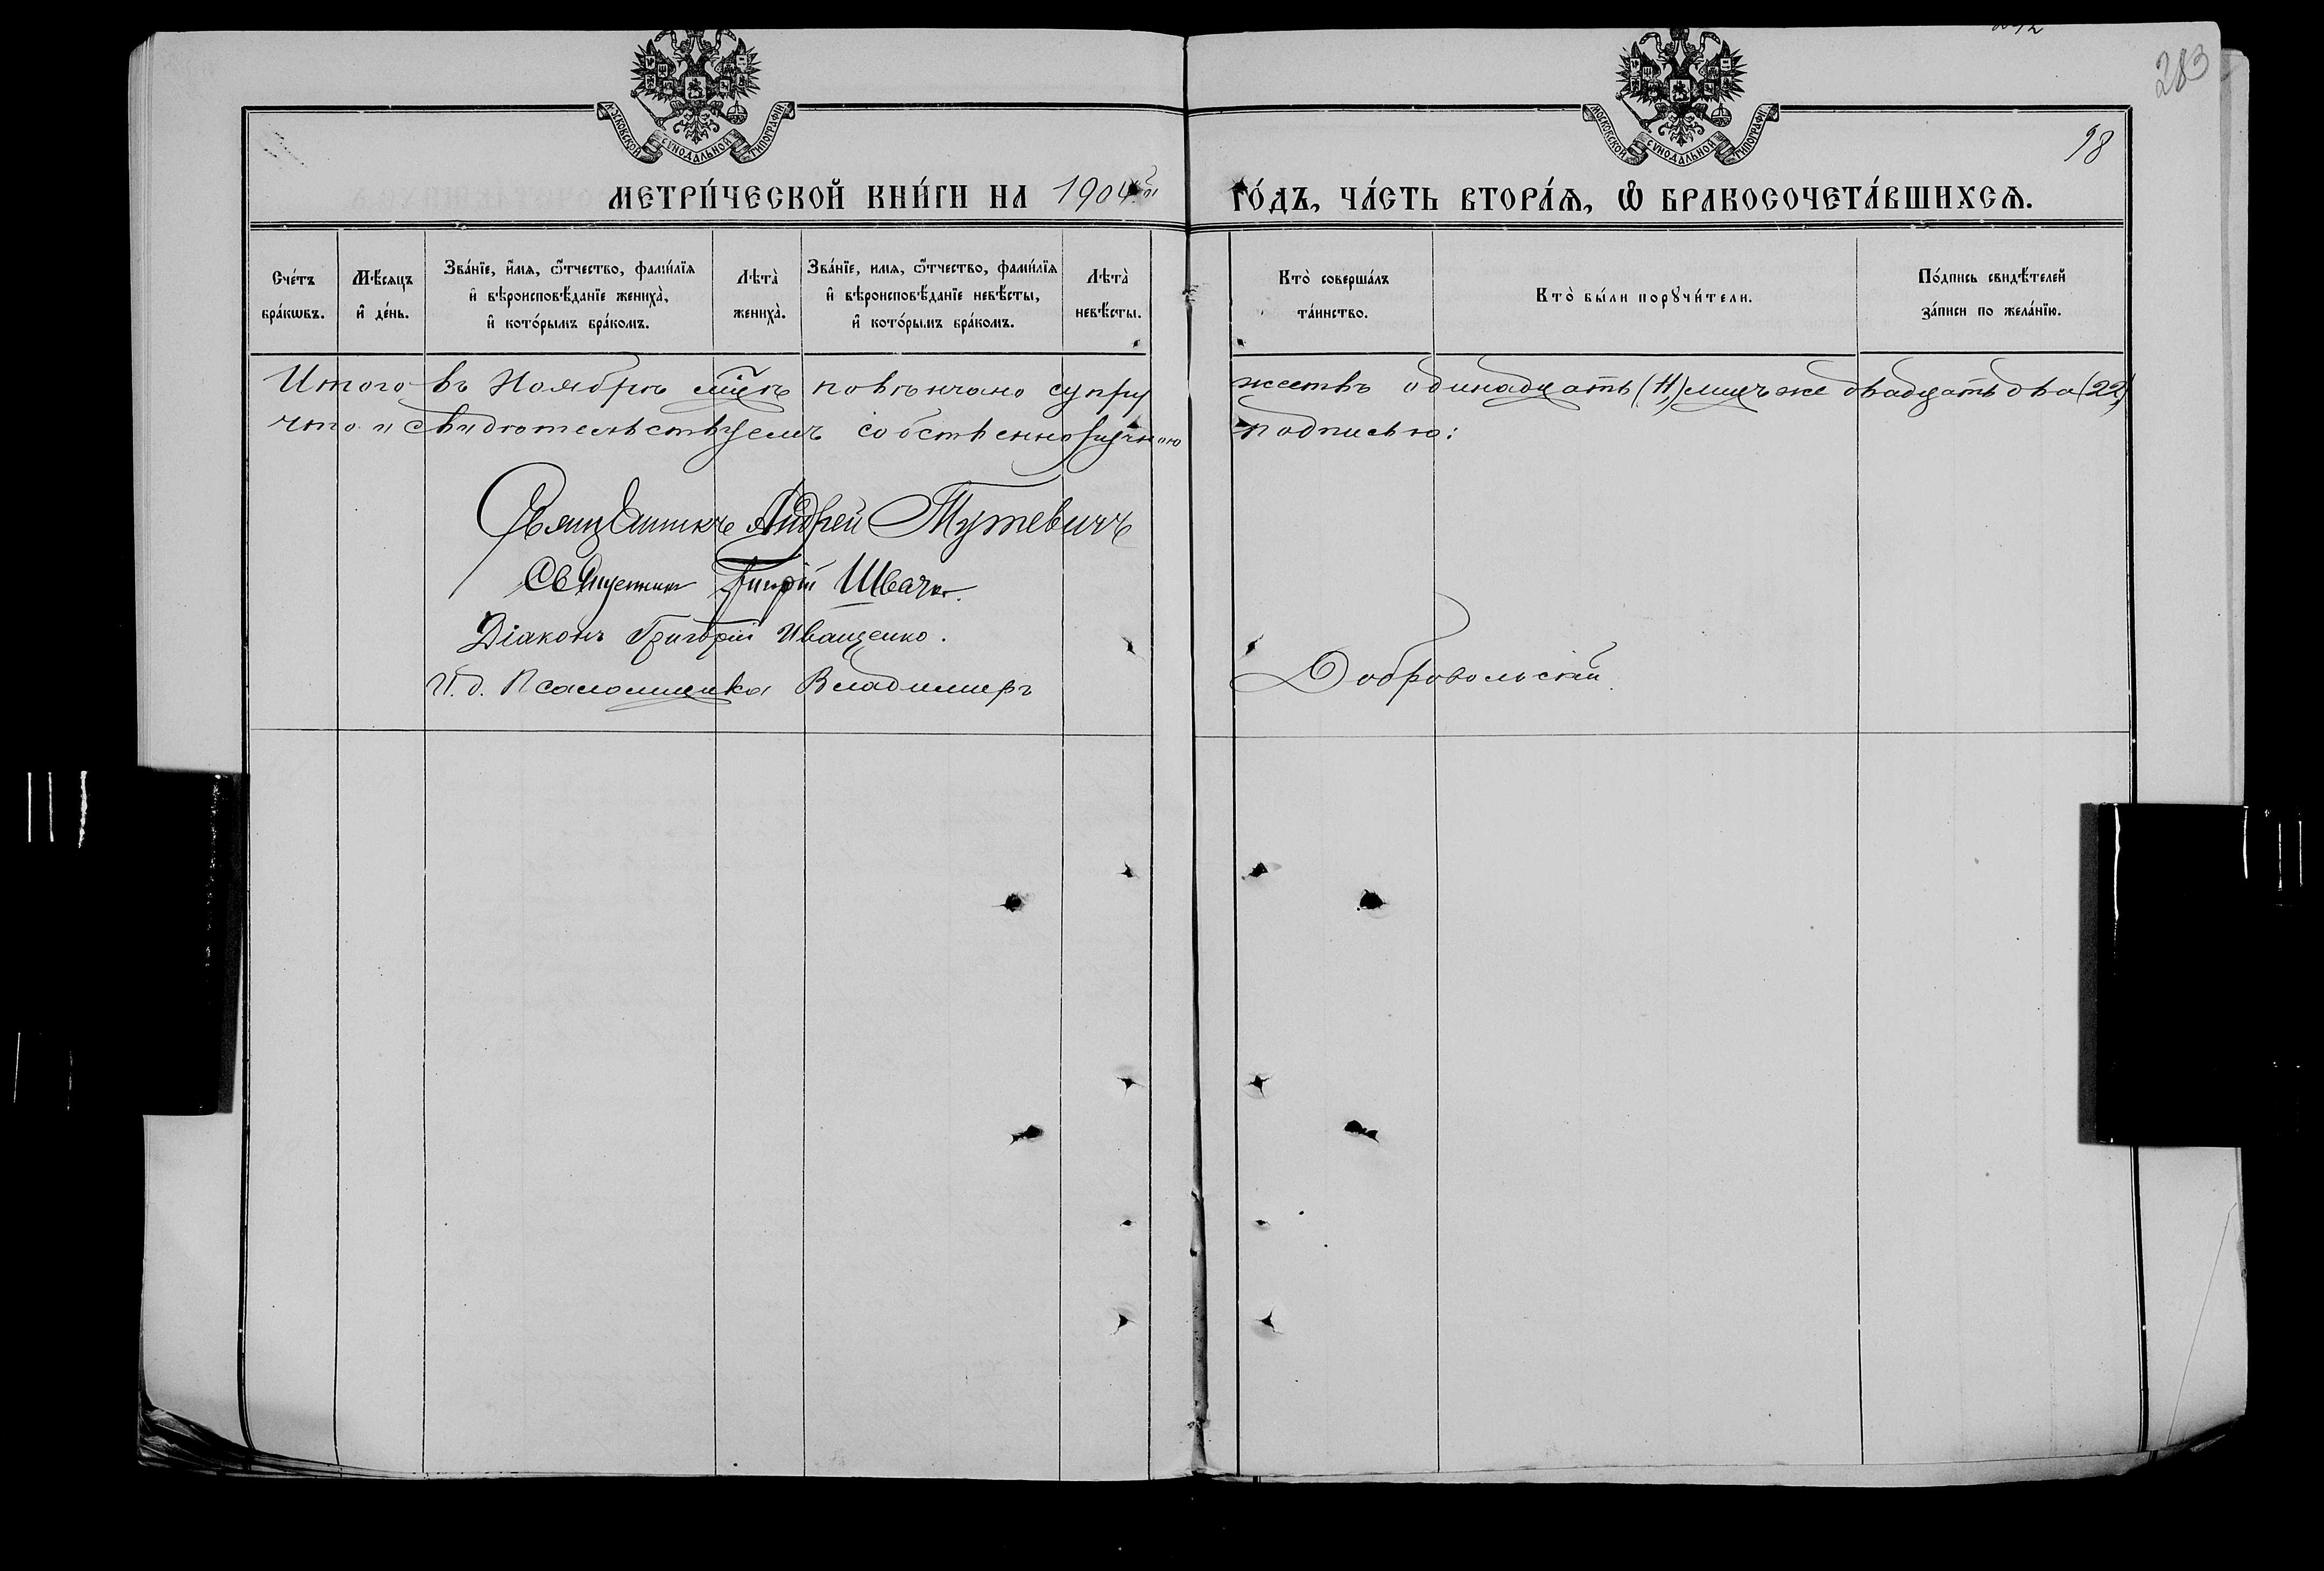 283
98
МОСКОВСКОЙ СѴНОДАЛЬНОЙ ТИПОГРАФІИ.
МОСКОВСКОЙ СѴНОДАЛЬНОЙ ТИПОГРАФІИ.
МЕТРИ́ЧЕСКОЙ КНИ́ГИ НА 1904й ГО́ДЪ, ЧА́СТЬ ВТОРА́Я, Ѡ БРАКОСОЧЕТА́ВШИХСЯ.
Сче́тъ бра́кѡвъ.
Мѣ́сяцъ и де́нь.
Зва́нїе, и́мя, ѻ҆́тчество, фами́лїя и вѣроисповѣ́данїе жениха̀, и кото́рымъ бра́комъ.
Лѣта̀ жениха̀.
Зва́нїе, имя, ѻ҆́тчество, фами́лїя и вѣроисповѣ́данїе невѣ́сты, и кото́рымъ бра́комъ.
Лѣта̀ невѣ́сты.
Кто̀ соверша́лъ та́инство.
Кто̀ бы́ли порꙋчи́тели.
По́дпись свидѣ́телей за́писи по жела́нїю.
Итого въ Ноябрѣ мцѣ повѣнчано супружествъ одинадцать (11) лицъ же двадцать два (22)
что и свидѣтельствуемъ собственноручною подписью:
Священникъ Андрей Тутевичъ
Священникъ Швачко.
Діаконъ Григорій Иващенко.
И. д. Псаломщика Владимиръ Добровольскій.